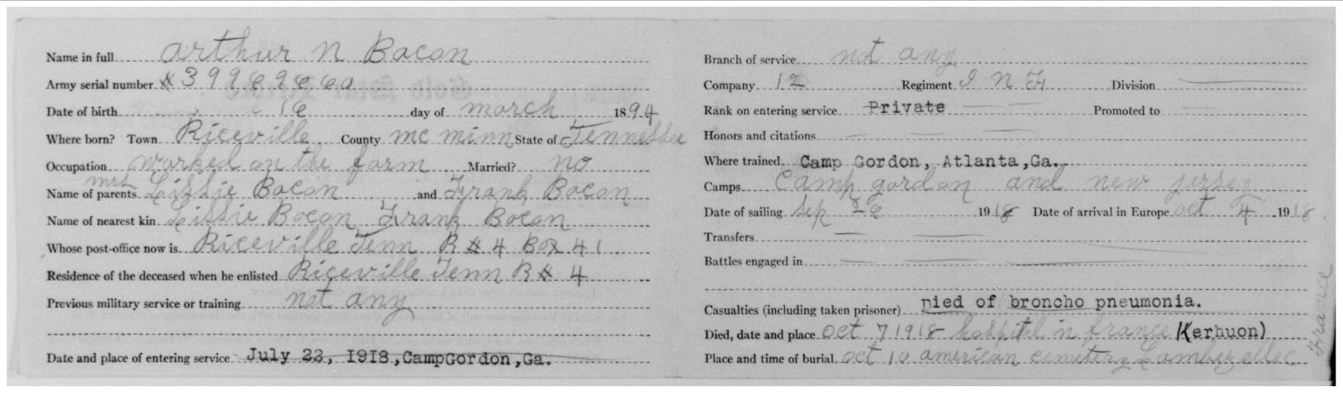 Name in full Arthur N Bacon
Army serial number
Date of birth 16 day of march 1894
Where born? Town Riceville County mc minn State of Tennessee
Occupation worked on the farm Married? no
Name of parents mrs Lissie Bacon and Frank Bacon
Name of nearest kin Lissie Bacon Frank Bacon
Whose post-office now is Riceville Tenn R # 4 Box 41
Residence of the deceased when he enlisted Riceville Tenn R # 4
Previous military service or training not any
Date and place of entering service July 23, 1918, CampGordon, Ga.
Branch of service not any
Company 12 Regiment INF Division
Rank on entering service Private Promoted to
Honors and citations
Where trained Camp Gordon, Atlanta, Ga.
Camps Camp gordon and new jersey
Date of sailing Sep 26 1918 Date of arrival in Europe oct 4 1918
Transfers
Battles engaged in
Casualties (including taken prisoner) Died of broncho pneumonia.
Died, date and place oct 7 1918 hospital in france (Kerhuon)
Place and time of burial oct 10 american cemetary
France